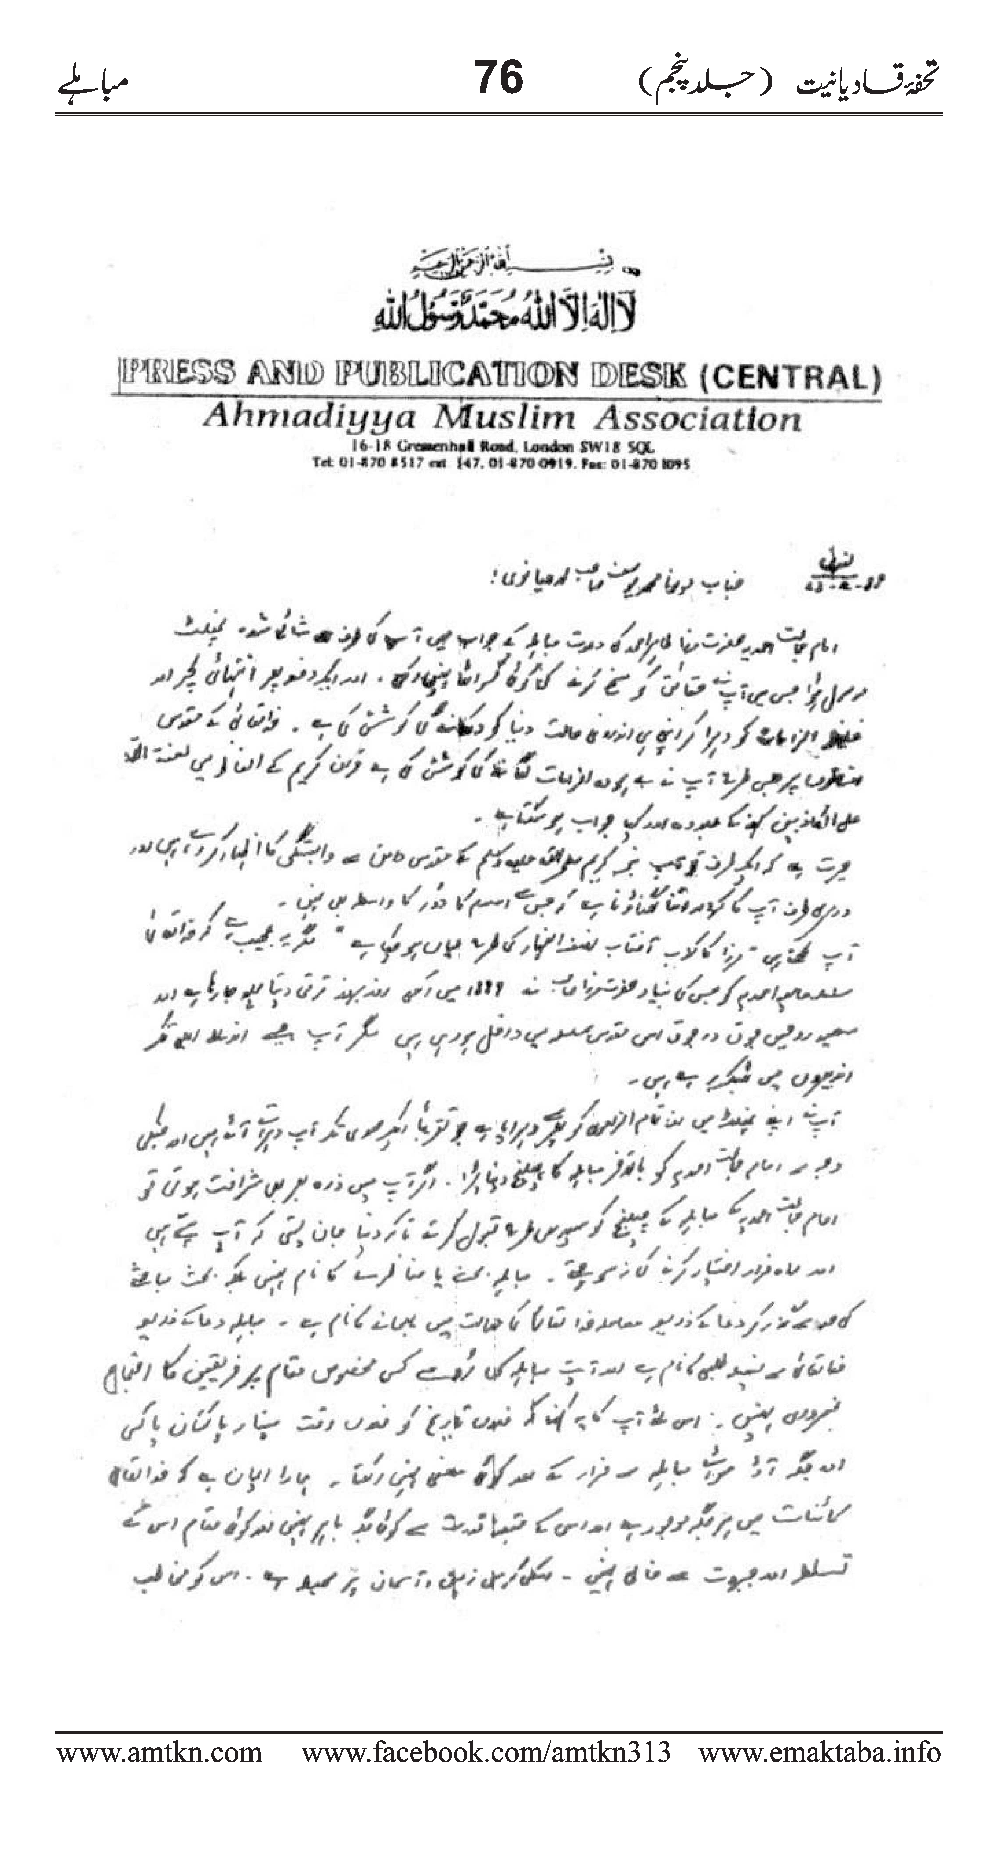 تحفۂ قادیانیت (جلد پنجم) 76 مباہلے
لا الہ الا اللہ محمد رسول اللہ
PRESS AND PUBLICATION DESK (CENTRAL)
Ahmadiyya Muslim Association
16-18 Gressenhall Road, London SW18 5QL
Tel: 01-870 8517 ext. 147, 01-870 0919. Fax: 01-870 1095
لندن
جناب مولانا محمد یوسف صاحب لدھیانوی!
امام جماعت احمدیہ حضرت مرزا طاہر احمد کی دعوت مباہلہ کے جواب میں آپ کی طرف سے شائع شدہ پمفلٹ
موصول ہوا جس میں آپ نے حقائق کو مسخ کرنے کی کوئی کسر اٹھا نہیں رکھی۔ اور ایک دفعہ پھر انتہائی لچر اور
الزامات کو دہرا کر اپنی ہی اندرونی حالت دنیا کو دکھانے کی کوشش کی ہے۔ خدا تعالیٰ کے مقدس
پر جس طرح آپ نے بے ہودہ الزامات لگانے کی کوشش کی ہے قرآن کریم کے الفاظ میں لعنة اللہ
علی الکاذبین کہنے کے علاوہ اور کیا جواب ہو سکتا ہے۔
حیرت ہے کہ ایک طرف تو آپ نبی کریم صلی اللہ علیہ وسلم کے مقدس دامن سے وابستگی کا اظہار کر رہے ہیں اور
دوسری طرف آپ کا کردار اتنا گھناؤنا ہے کہ جس سے اسلام کا دور کا واسطہ بھی نہیں۔
آپ لکھتے ہیں "مرزا کا کذب آفتاب نصف النہار کی طرح عیاں ہو چکا ہے" مگر یہ عجیب ہے کہ خدا تعالیٰ
سلسلہ عالیہ احمدیہ کو جس کی بنیاد حضرت مرزا صاحب نے 1889 میں رکھی روز بروز ترقی دیتا چلا جا رہا ہے اور
سعید روحیں جوق در جوق اس مقدس سلسلہ میں داخل ہو رہی ہیں مگر آپ جیسے ازلی
اندھیروں میں بھٹک رہے ہیں۔
آپ نے اپنے پمفلٹ میں ان تمام الزاموں کو پھر دہرایا ہے جو تقریباً ایک صدی تک آپ دہراتے آئے ہیں اور جن کی
وجہ سے امام جماعت احمدیہ کو بالآخر مباہلہ کا چیلنج دینا پڑا۔ اگر آپ میں ذرہ بھر بھی شرافت ہوتی تو
امام جماعت احمدیہ کے مباہلہ کے چیلنج کو سیدھی طرح قبول کرتے تاکہ دنیا جان لیتی کہ آپ سچے ہیں
اور راہ فرار اختیار کرنے کی نہ سوچتے۔ مباہلہ بحث یا مناظرے کا نام نہیں بلکہ بحث مباحثے
کی حدود سے گزر کر دعا کے ذریعہ معاملہ خدا تعالیٰ کی عدالت میں لے جانے کا نام ہے۔ مباہلہ دعا کے ذریعہ
خدا تعالیٰ سے فیصلہ طلبی کا نام ہے اور آیت مباہلہ کی رو سے کسی مخصوص مقام پر فریقین کا اجتماع
ضروری نہیں۔ اس لئے آپ کا یہ کہنا کہ فلاں تاریخ کو فلاں وقت مینار پاکستان یا کسی
اور جگہ آؤ سوائے مباہلہ سے فرار کے اور کوئی معنی نہیں رکھتا۔ ہمارا ایمان ہے کہ خدا تعالیٰ
کائنات میں ہر جگہ موجود ہے اور اس کے قبضہ قدرت سے کوئی جگہ باہر نہیں اور کوئی مقام اس کے
تسلط اور جبروت سے خالی نہیں۔ اس کی کرسی زمین و آسمان پر محیط ہے۔ اس کو مخاطب
www.amtkn.com www.facebook.com/amtkn313 www.emaktaba.info